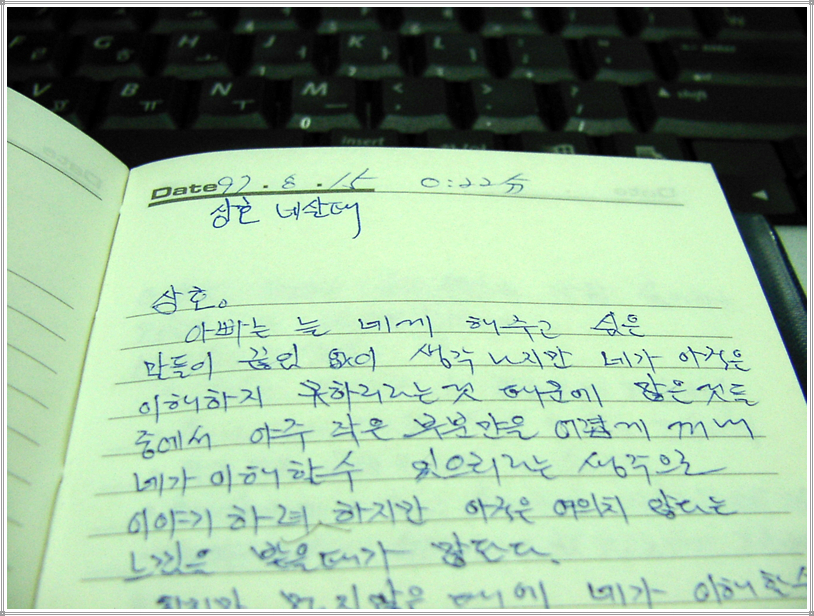 F ㄹ G ㅎ H ㅗ J ㅓ K ㅏ L ㅣ
V ㅍ B ㅠ N ㅜ M ㅡ < >
0 insert
Date 97 . 8 . 15 0:22分
상호 네살때
상호.
아빠는 늘 네게 해주고 싶은
말들이 끊임 없이 생각 나지만 네가 아직은
이해하지 못하리라는것 때문에 많은것들
중에서 아주 작은 부분만을 어렵게 꺼내
네가 이해할수 있으리라는 생각으로
이야기 하려 하지만 아직은 여의치 않다는
느낌을 받을때가 많단다.
하지만 멀지않은 때에 네가 이해할수